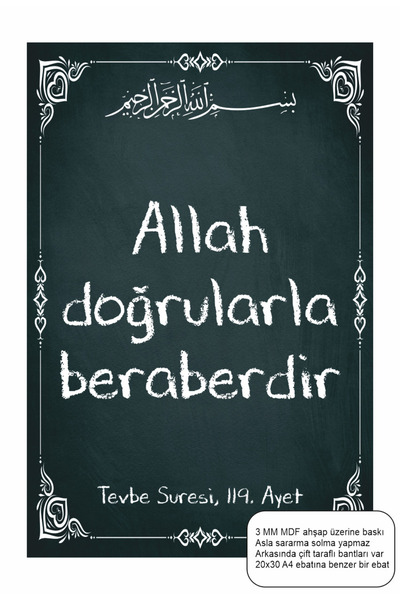 بسم الله الرحمن الرحيم
Allah
doğrularla
beraberdir
Tevbe Suresi, 119. Ayet
3 MM MDF ahşap üzerine baskı
Asla sararma solma yapmaz
Arkasında çift taraflı bantları var
20x30 A4 ebatına benzer bir ebat